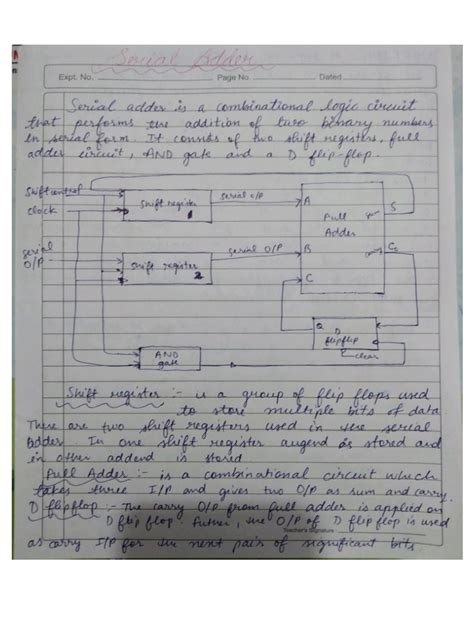 Serial Adder
Expt. No. Page No. Dated
Serial adder is a combinational logic circuit
that performs the addition of two binary numbers
in serial form. It consists of two shift registers, full
adder circuit, AND gate and a D flip-flop.
Shift control
clock
shift register 1
serial O/P
A
Full Adder
S
serial O/P
shift register 2
serial O/P
B
C
Q D
flipflip
clear
AND gate
Shift register :- is a group of flip flops used
to store multiple bits of data
There are two shift registers used in the serial
Adder. In one shift register augend is stored and
in other addend is stored
Full Adder :- is a combinational circuit which
takes three I/P and gives two O/P as sum and carry.
D flipflop :- The carry O/P from full adder is applied on
D flip flop. further, the O/P of D flip flop is used
Teacher's Signature
as carry I/P for the next pair of significant bits.